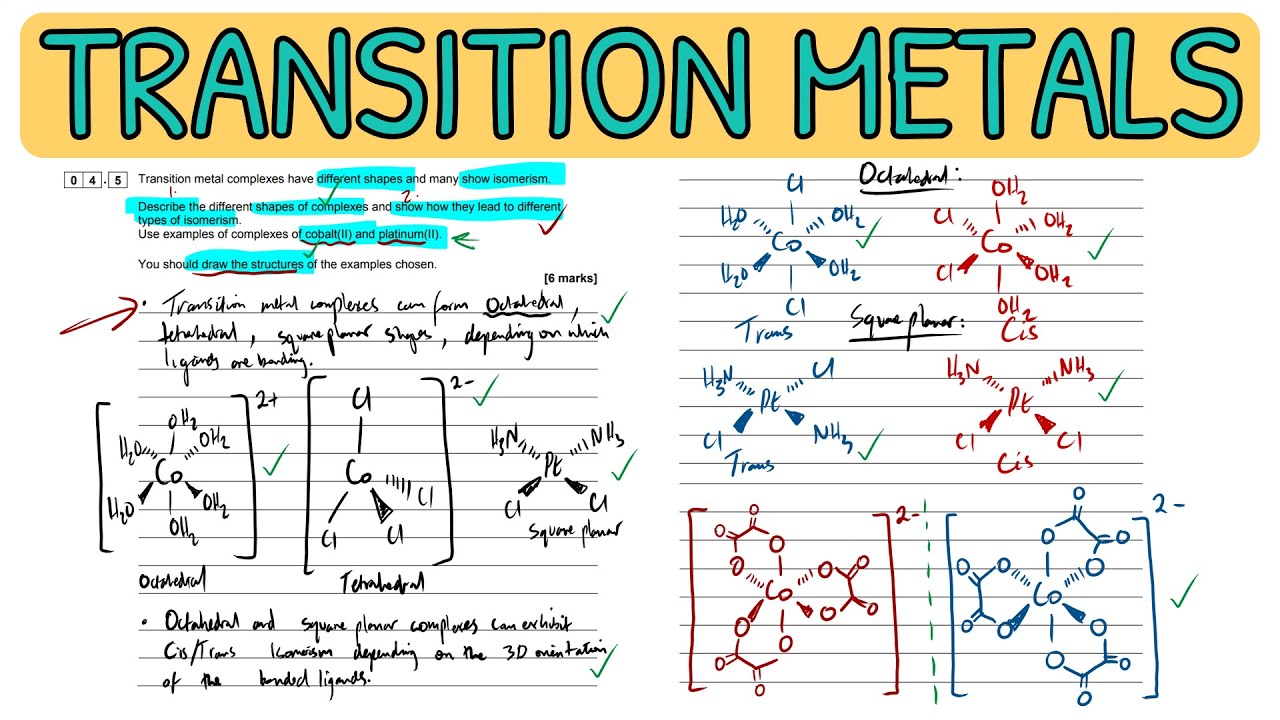 TRANSITION METALS
0 4 . 5
Transition metal complexes have different shapes and many show isomerism.
1. 2.
Describe the different shapes of complexes and show how they lead to different
types of isomerism.
Use examples of complexes of cobalt(II) and platinum(II).
You should draw the structures of the examples chosen.
[6 marks]
• Transition metal complexes can form Octahedral,
tetrahedral, square planar shapes, depending on which
ligands are bonding.
2+
OH₂
H₂O OH₂
Co
H₂O OH₂
OH₂
Octahedral
2-
Cl
Co
Cl Cl Cl
Tetrahedral
H₃N NH₃
Pt
Cl Cl
Square planar
• Octahedral and square planar complexes can exhibit
Cis/Trans Isomerism depending on the 3D orientation
of the bonded ligands.
Octahedral:
Cl
H₂O OH₂
Co
H₂O OH₂
Cl
Trans
OH₂
Cl OH₂
Co
Cl OH₂
OH₂
Cis
Square planar:
H₃N Cl
Pt
Cl NH₃
Trans
H₃N NH₃
Pt
Cl Cl
Cis
2-
O
O O
O O O
Co
O O O
O O
O
2-
O
O O
O O O
Co
O O O
O O
O